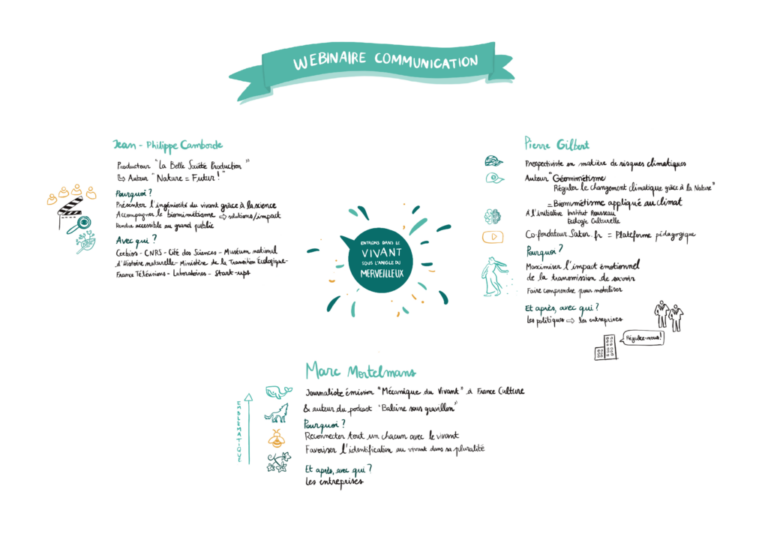 WEBINAIRE COMMUNICATION
Jean-Philippe Camborde
Producteur "La Belle Société Production"
Auteur "Nature = Futur !"
Pourquoi ?
Présenter l'ingéniosité du vivant grâce à la science
Accompagner le biomimétisme ⇒ solutions/impact
Rendre accessible au grand public
Avec qui ?
Ceebios - CNRS - Cité des Sciences - Muséum national
d'Histoire naturelle - Ministère de la Transition Écologique -
France Télévisions - Laboratoires - Start-ups
Pierre Gilbert
Prospectiviste en matière de risques climatiques
Auteur "Géomimétisme
Réguler le changement climatique grâce à la Nature"
= Biomimétisme appliqué au climat
A l'initiative Institut Rousseau
Ecologie Culturelle
Co-fondateur Sator.fr = Plateforme pédagogique
Pourquoi ?
Maximiser l'impact émotionnel
de la transmission de savoirs
Faire comprendre pour mobiliser
Et après, avec qui ?
les politiques ⇒ les entreprises
Régulez-nous !
ENTRONS DANS LE
VIVANT
SOUS L'ANGLE DU
MERVEILLEUX
Marc Mortelmans
Journaliste émission "Mécanique du Vivant" à France Culture
& auteur du podcast "Baleine sous gravillon"
Pourquoi ?
Reconnecter tout un chacun avec le vivant
Favoriser l'identification au vivant dans sa pluralité
Et après, avec qui ?
Les entreprises